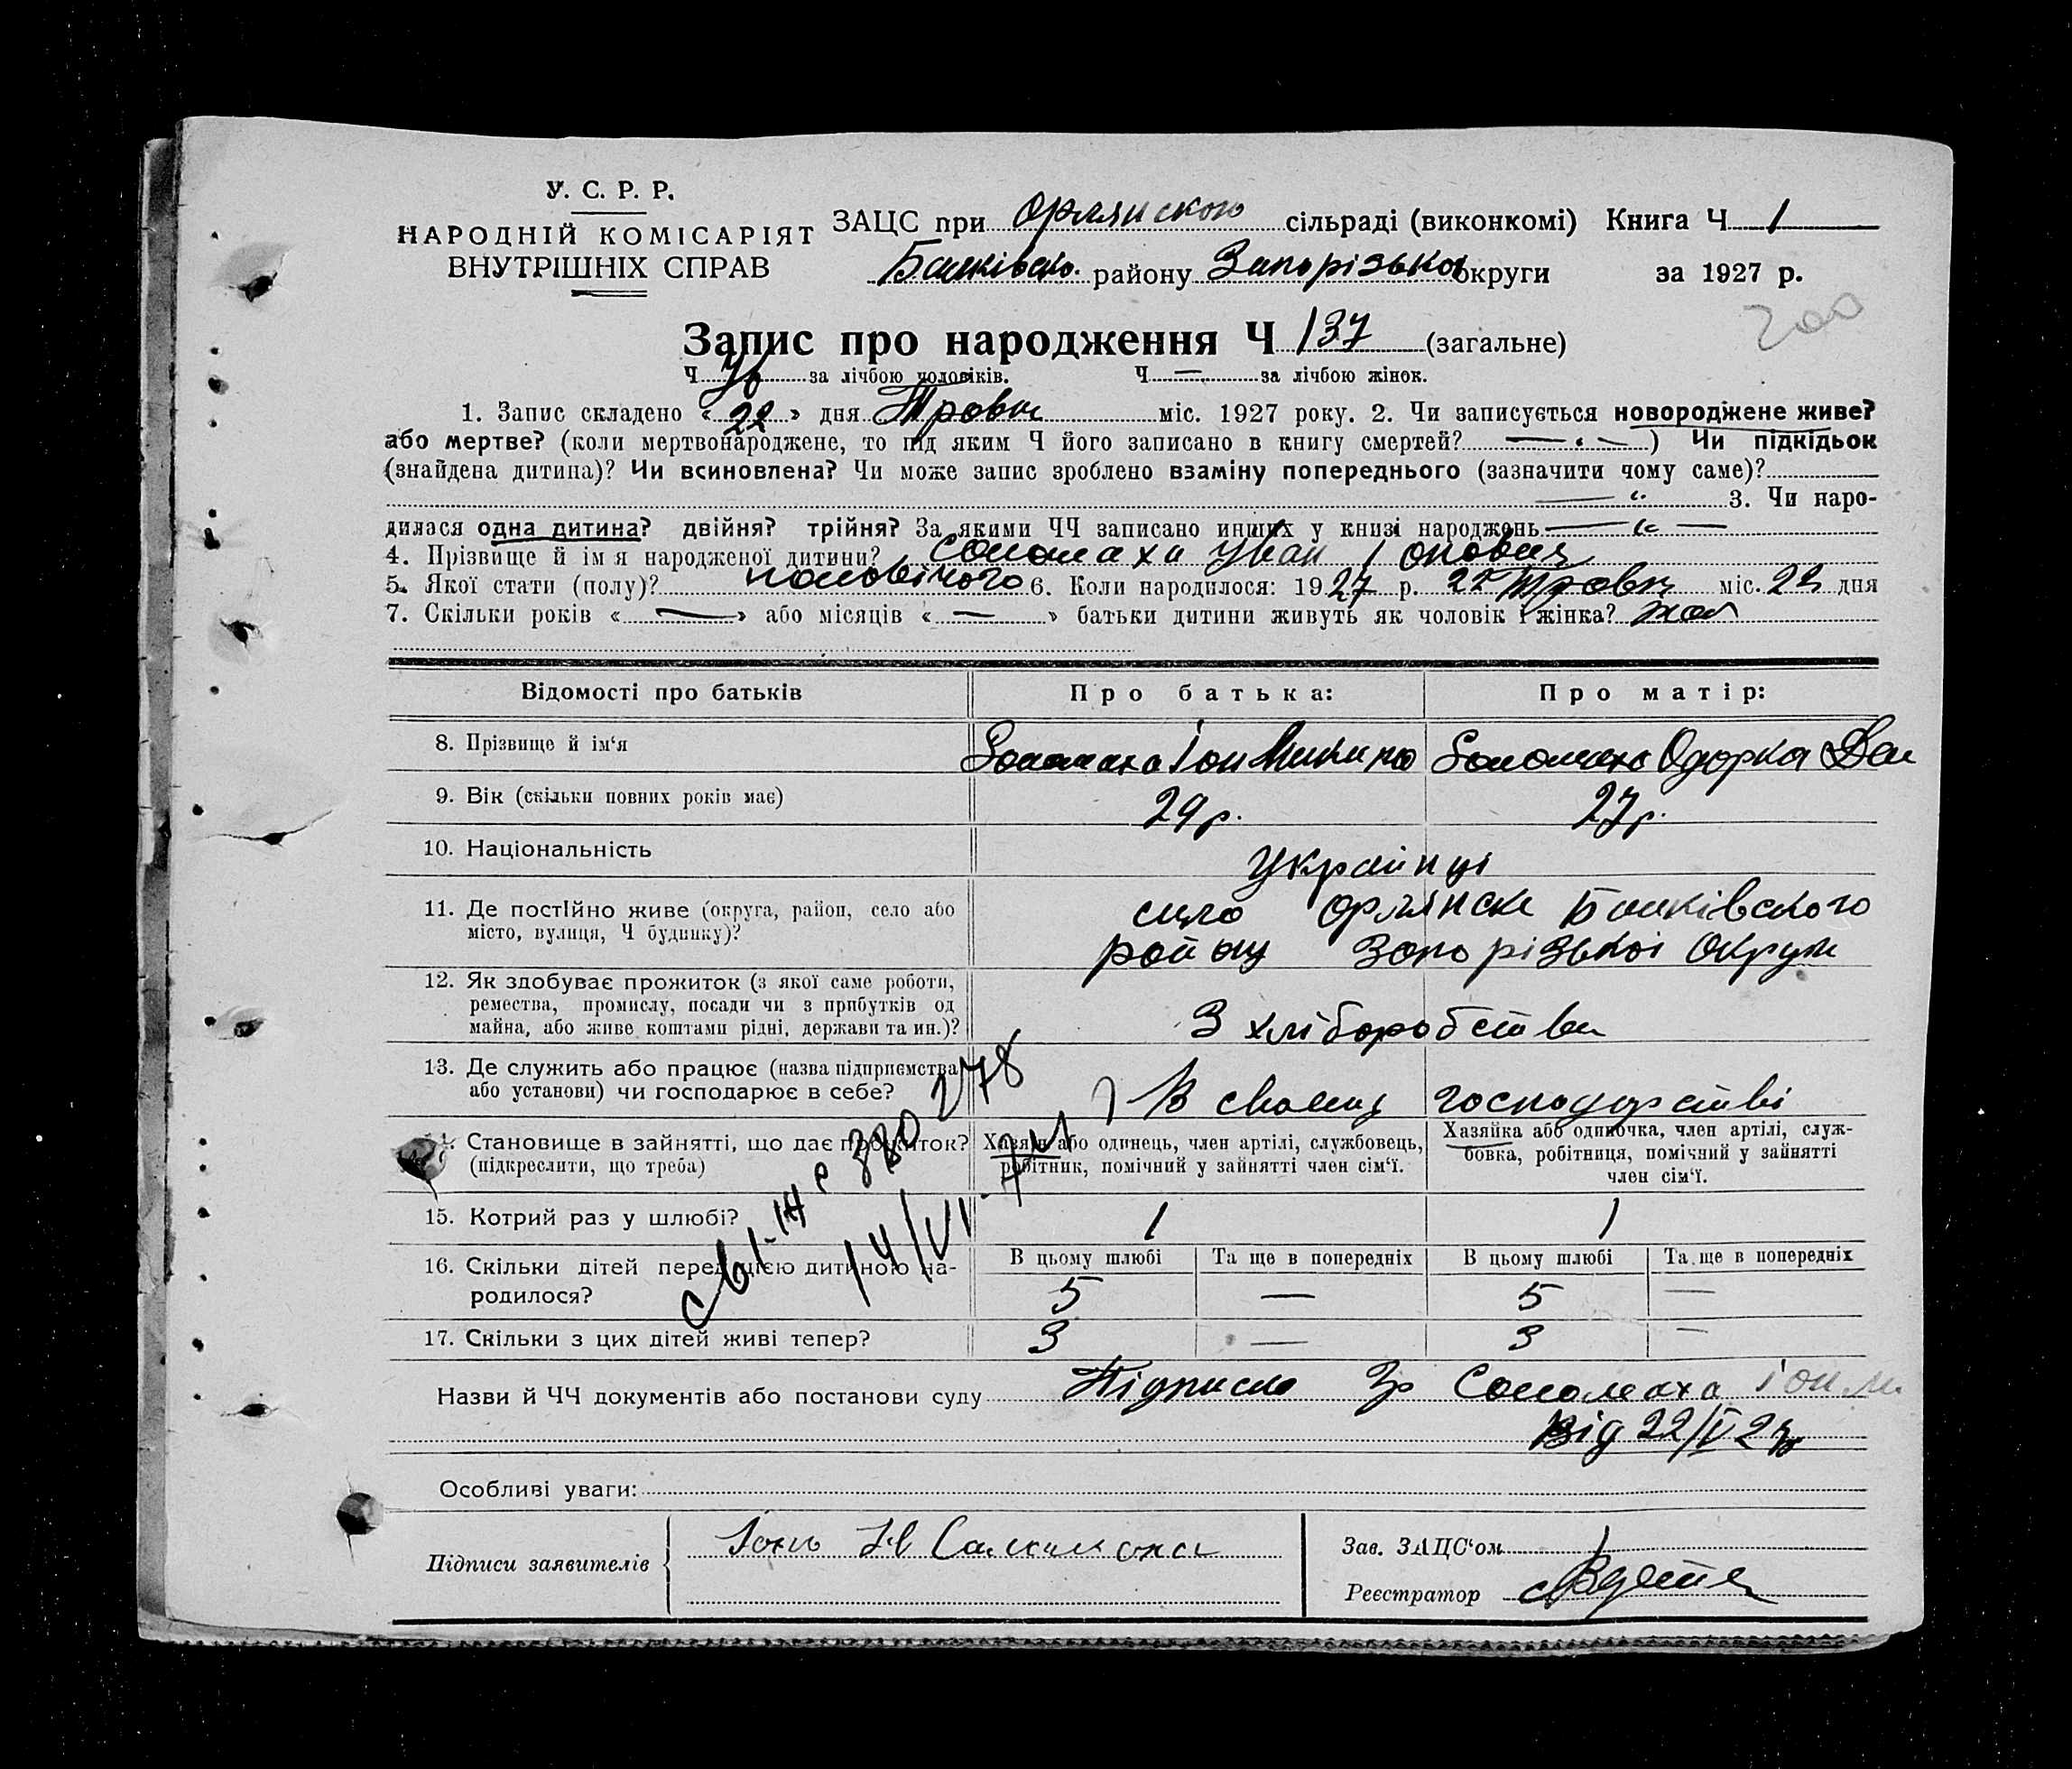 У. С. Р. Р.
НАРОДНІЙ КОМІСАРІЯТ
ВНУТРІШНІХ СПРАВ
ЗАЦС при Орлянскою сільраді (виконкомі) Книга Ч 1
району Запорізької округи за 1927 р.
200
Запис про народження Ч 137 (загальне)
Ч за лічбою чоловіків. Ч — за лічбою жінок.
1. Запис складено «22» дня Тровня міс. 1927 року. 2. Чи записується новороджене живе?
або мертве? (коли мертвонароджене, то під яким Ч його записано в книгу смертей? — „ —) Чи підкідьок
(знайдена дитина)? Чи всиновлена? Чи може запис зроблено взаміну попереднього (зазначити чому саме)?
— „ 3. Чи наро-
дилася одна дитина? двійня? трійня? За якими ЧЧ записано инших у книзі народжень — „ —
4. Прізвище й ім'я народженої дитини? Соломаха Іван Іонович
5. Якої стати (полу)? чоловічого 6. Коли народилося: 1927 р. Тровня міс. 22 дня
7. Скільки років «—» або місяців «—» батьки дитини живуть як чоловік і жінка?
Відомості про батьків Про батька: Про матір:
8. Прізвище й ім'я Соломаха Іон Соломаха Одарка
9. Вік (скільки повних років має) 29 р. 27 р.
10. Національність Українці
11. Де постійно живе (округа, район, село або село Орлянске Балківского
місто, вулиця, Ч будинку)? району Запорізької Округи
12. Як здобуває прожиток (з якої саме роботи,
ремества, промислу, посади чи з прибутків од
майна, або живе коштами рідні, держави та ин.)? З хліборобства
13. Де служить або працює (назва підприємства
або установи) чи господарює в себе? В своему господарстві
14. Становище в зайнятті, що дає прожиток? Хазяїн або одинець, член артілі, службовець, Хазяйка або одиночка, член артілі, служ-
(підкреслити, що треба) робітник, помічний у зайнятті член сім'ї. бовка, робітниця, помічний у зайнятті
член сім'ї.
15. Котрий раз у шлюбі? 1 1
16. Скільки дітей перед цією дитиною на- В цьому шлюбі Та ще в попередніх В цьому шлюбі Та ще в попередніх
родилося? 5 — 5 —
17. Скільки з цих дітей живі тепер? 3 — 3 —
14/VI-
Назви й ЧЧ документів або постанови суду Підписка Гр Соломаха Іон
від 22/V 27
Особливі уваги:
Підписи заявителів
Зав. ЗАЦС'ом
Реєстратор